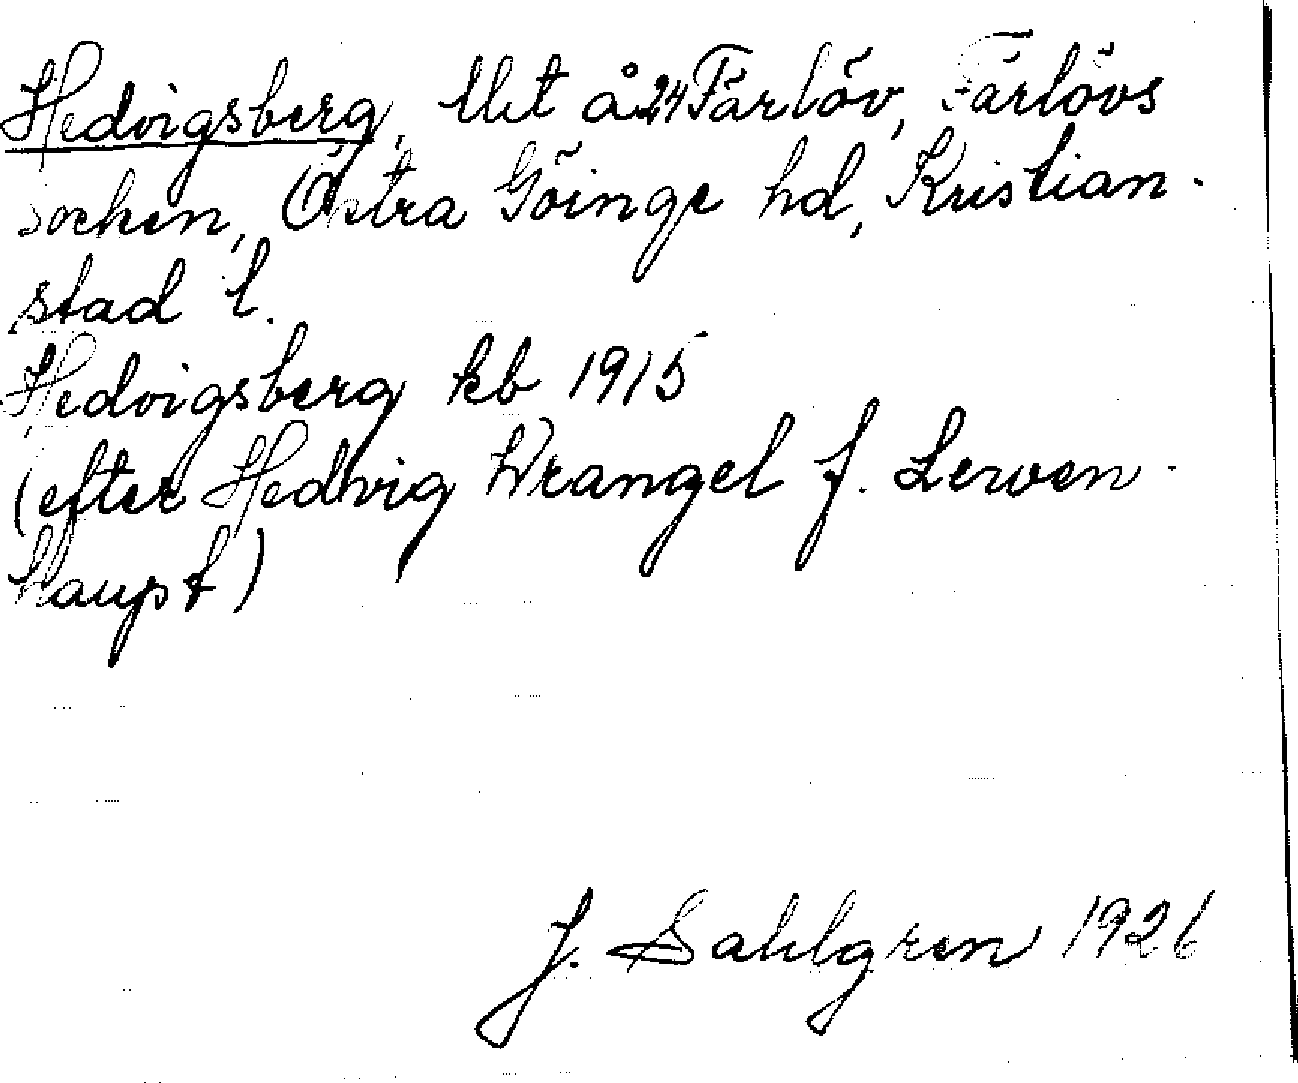 Hedvigsberg, Utt å 24 Färlöv, Färlövs
socken, Östra Göinge hd, Kristian-
stad l.
Hedvigsberg kb 1915
(efter Hedvig Wrangel f. Lewen-
haupt)
J. Sahlgren 1926